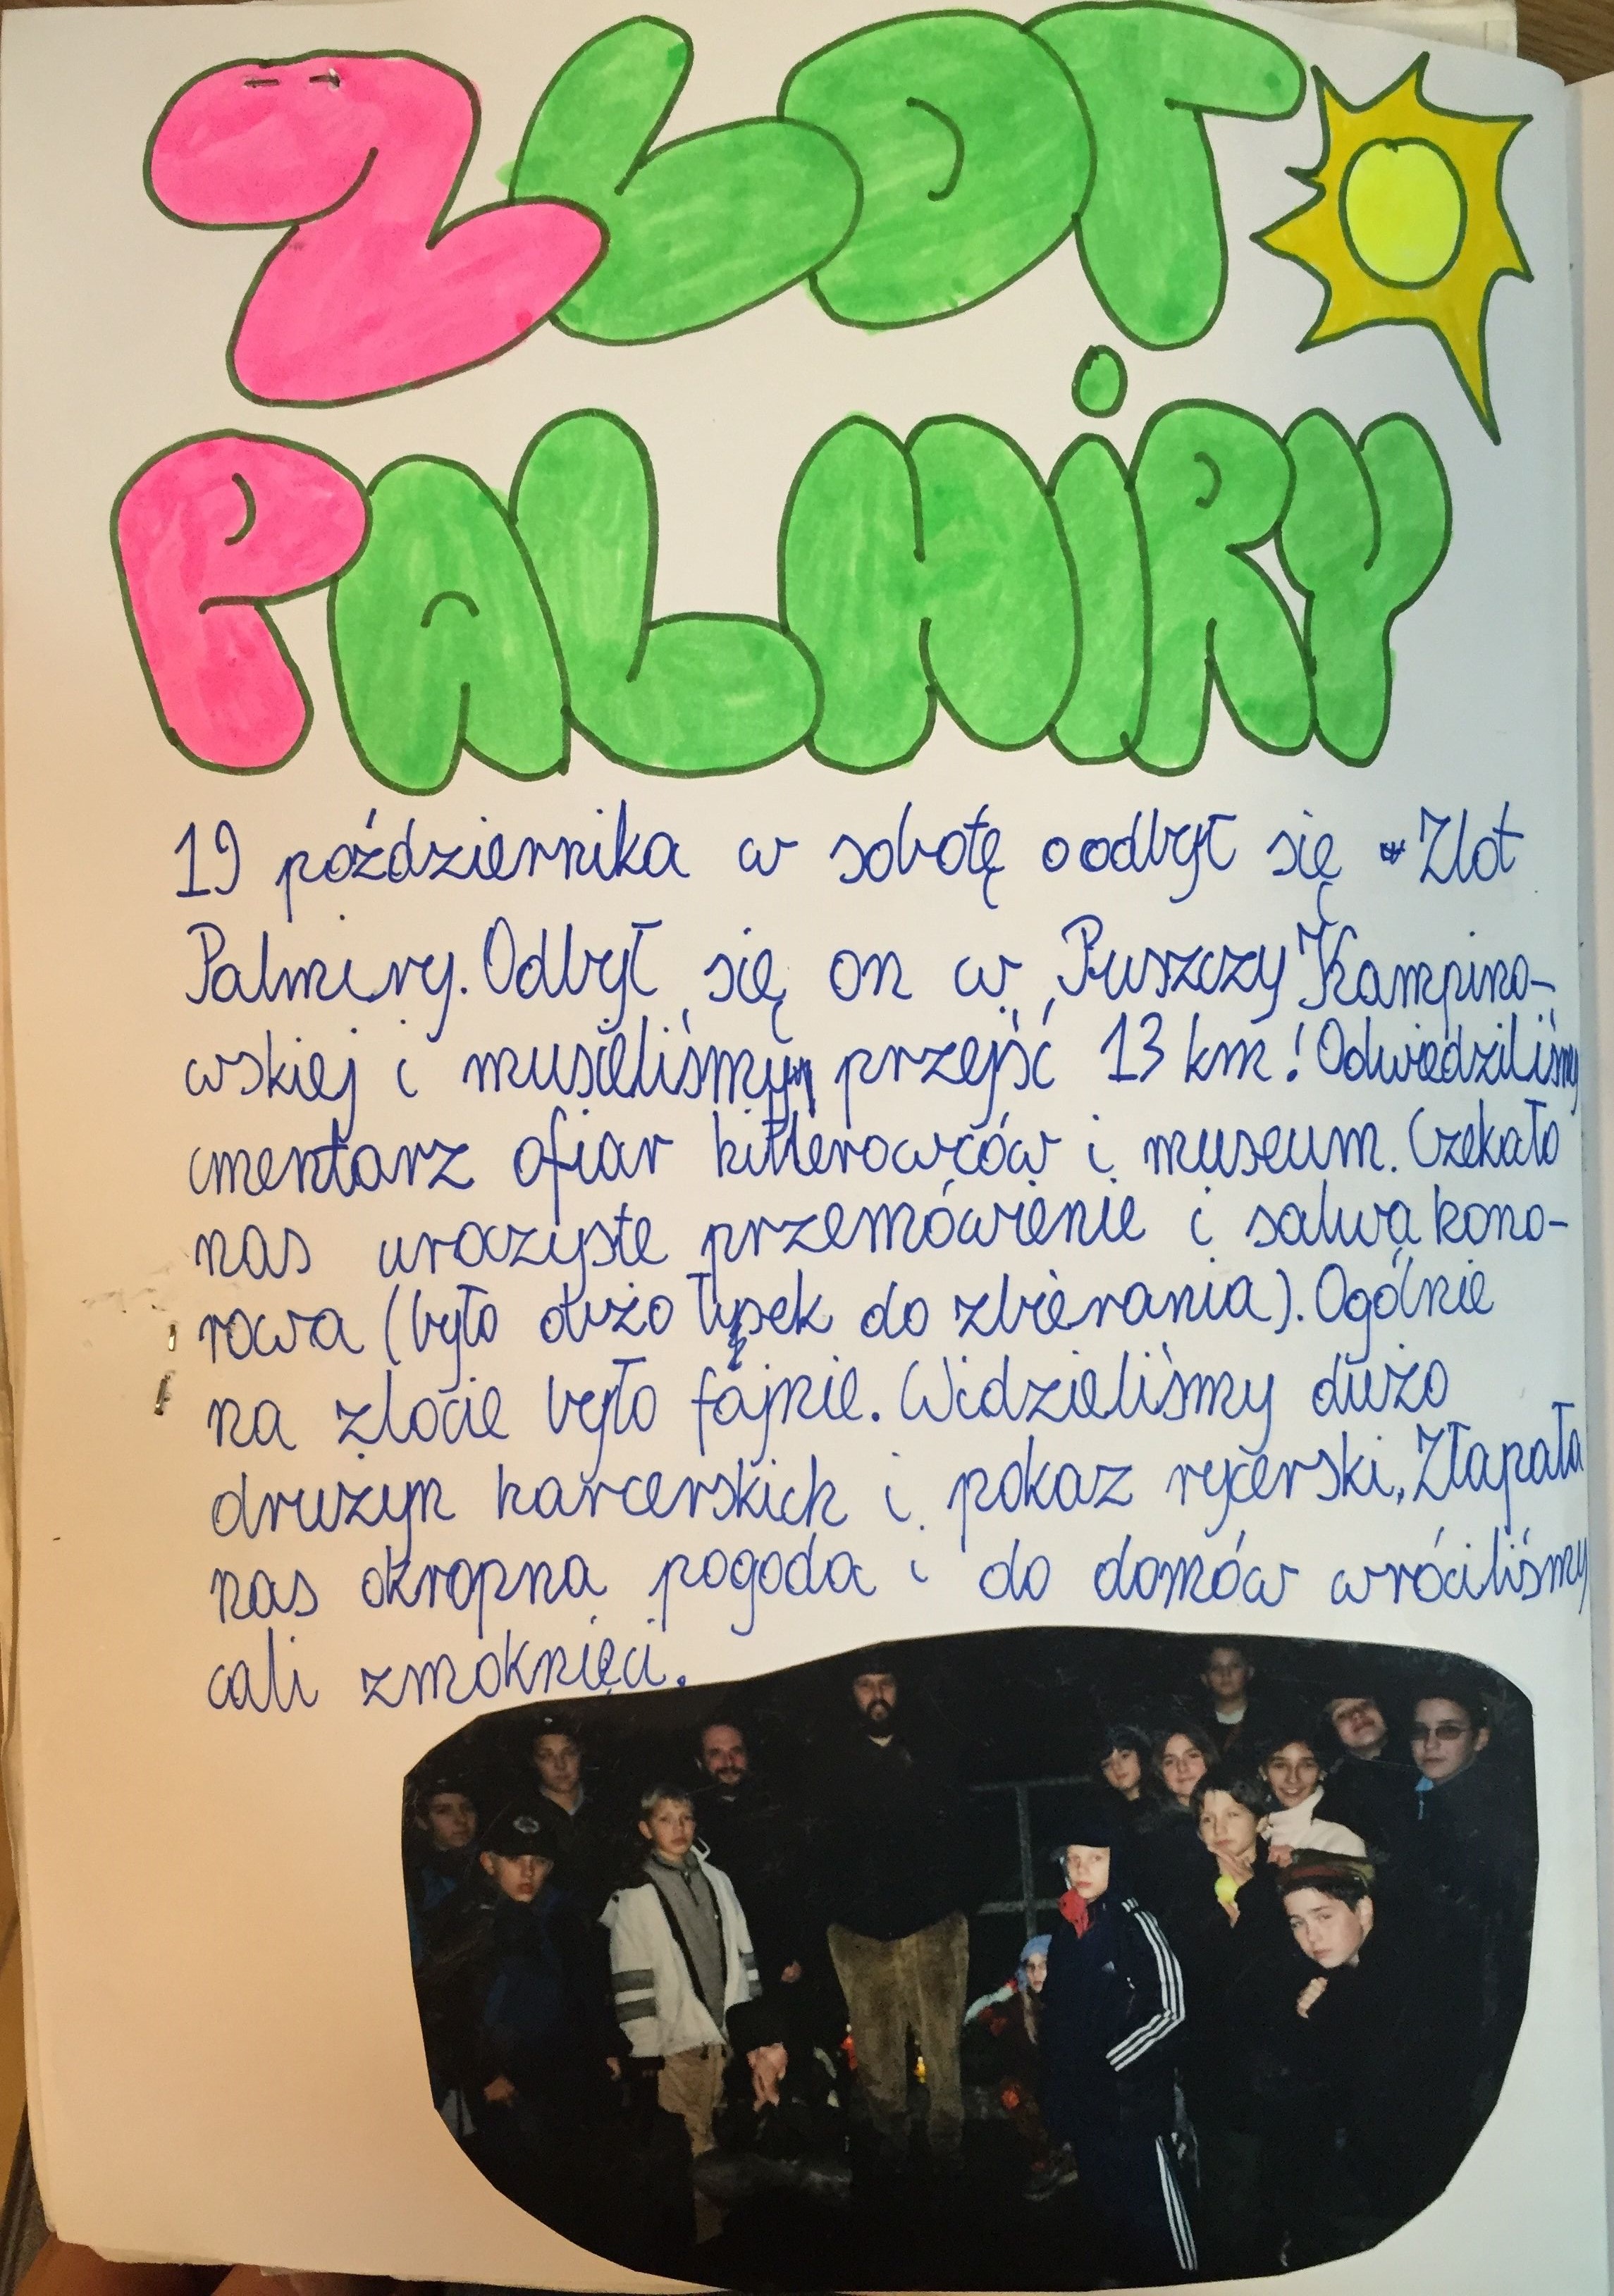 ZLOT
PALMiRY
19 października w sobotę oodbył się Zlot
Palmiry. Odbył się on w Puszczy Kampino-
wskiej i musieliśmy przejść 13 km! Odwiedziliśmy
cmentarz ofiar hitlerowców i museum. Czekało
nas uroczyste przemówienie i salwa hono-
rowa (było dużo łysek do zbierania). Ogólnie
na zlocie było fajnie. Widzieliśmy dużo
drużyn harcerskich i pokaz rycerski. Złapała
nas okropna pogoda i do domów wróciliśmy
cali zmoknięci.